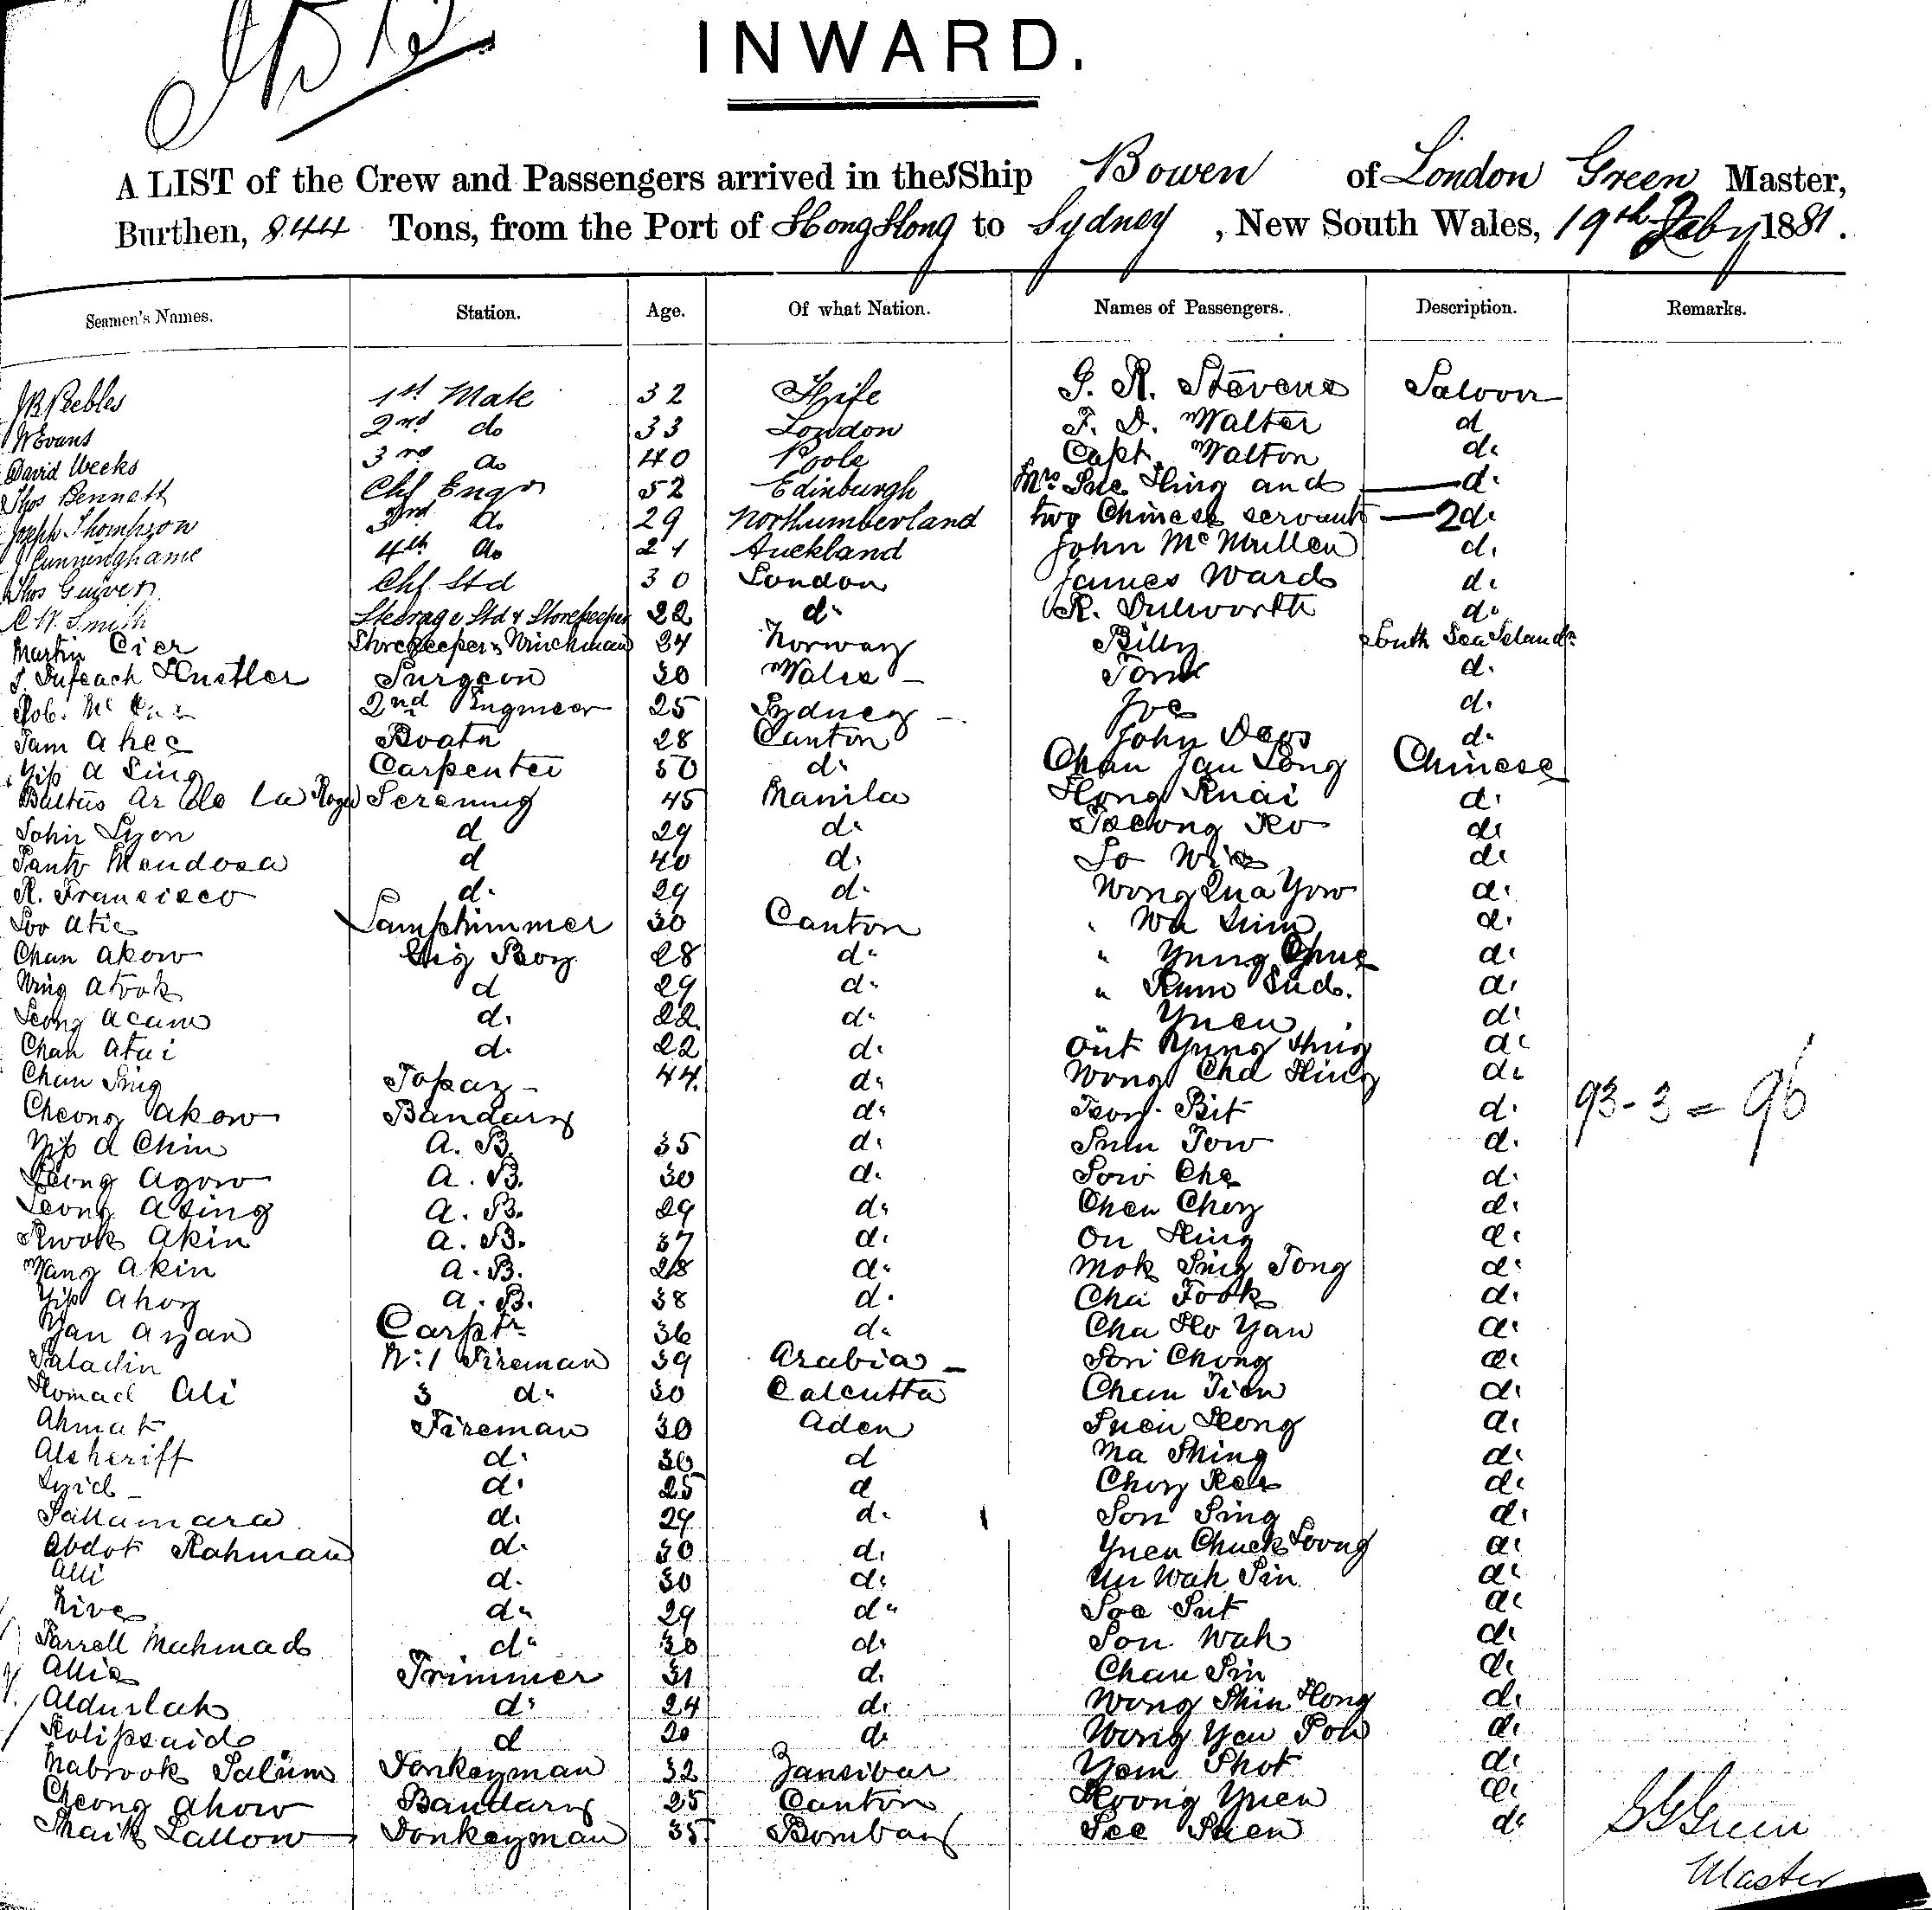 INWARD.
A LIST of the Crew and Passengers arrived in the SShip Bowen of London Green Master,
Burthen, 844 Tons, from the Port of Hong Kong to Sydney, New South Wales, 19th Feby 1881.
Seamen's Names. Station. Age. Of what Nation. Names of Passengers. Description. Remarks.
Peebles 1st Mate 32 Fife G. R. Stevens Saloon
W Evans 2nd do 33 London F. D. Walter d
David Weeks 3rd do 40 Poole Capt. Walton do
Thos Bennett Chf Engr 52 Edinburgh Mrs Sue Hing and — do
Joseph Thompson 3rd do 29 Northumberland two Chinese servants — 2 do
J Cunninghame 4th do 21 Auckland John McMullen do
Thos Guiver Chf Std 30 London James Ward do
C W. Smith Steerage Std & Storekeeper 22 do R. Dulworth do
Martin Eier Storekeeper & Winchman 24 Norway Billy South Sea Islander
Hustler Surgeon 30 Wales Tom do
Rob. Mc 2nd Engineer 25 Sydney Joe do
Tam Ahee Boatn 28 Canton John Deos do
Yip A Sing Carpenter 50 do Chan Jau Long Chinese
de la 45 Manila Hong Kuai do
John Lyon d 29 do Ko do
Mendosa d 40 do So do
R. Francisco do 29 do Wong Qua Yow do
Loo Atie Lamptrimmer 30 Canton " Wa do
Chan Akow Boy 28 do " Yung do
Wing Atook d 29 do " do
Leong Acam do 22 do " Yuen do
Chan Atai do 22 do Out Yung do
Chan Sing Topaz 44 do Wong Cha Hing do
Cheong Akow Bandary do Bit do 93-3=96
Yip A Chin A. B. 35 do Tow do
Leong Agow A. B. 30 do Sow Che do
Leong Asing A. B. 29 do Chen Choy do
Kwok Akin A. B. 37 do On Hing do
Wang Akin A. B. 28 do Mok Sing Tong do
Yip Ahoy A. B. 38 do Cha Fook do
Yan Ayan Carptr 36 do Cha Ho Yan do
Saladin No 1 Fireman 39 Arabia Son Chong do
Homad Ali 3 do 30 Calcutta Chan Tien do
Ahmat Fireman 30 Aden Suen Hong do
Alsheriff do 30 d Ma Shing do
Syid do 25 d Choy Kee do
Sallamara do 29 do Son Sing do
Abdot Rahman do 30 do Yuen Chuck Loong do
Alli do 30 do Un Wah Sin do
Rives do 29 do Soe Sut do
Farrell Mahmad do 30 do Son Wah do
Allie Trimmer 31 do Chan Sin do
Aldurlah do 24 do Wong Shin Hong do
Kolipsaid d 20 do Wong Yew Poh do
Mabrook Salum Donkeyman 32 Zansibar Yom Shot do
Cheong Ahow Bandary 25 Canton Koong Yuen do
Shaik Lallow Donkeyman 35 Bombay See Suen do
Green
Master